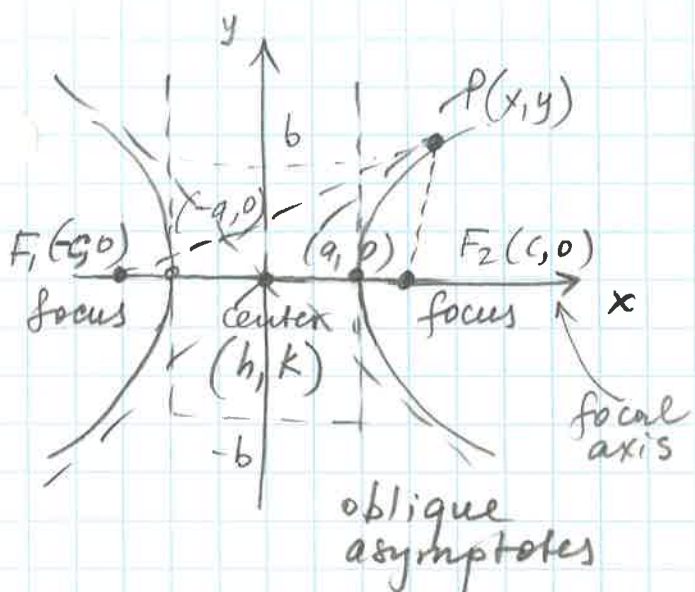 y
P(x,y)
b
(-a,0)
F₁(-c,0)
(a,0)
F₂(c,0)
focus
center
focus
x
(h,k)
focal
axis
-b
oblique
asymptotes